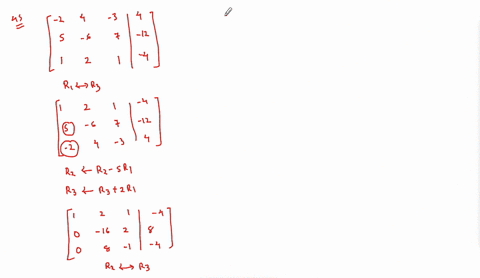 45
-2 4 -3 | 4
5 -6 7 | -12
1 2 1 | -4
R1 ↔ R3
1 2 1 | -4
5 -6 7 | -12
-2 4 -3 | 4
R2 ← R2 - 5R1
R3 ← R3 + 2R1
1 2 1 | -4
0 -16 2 | 8
0 8 -1 | -4
R2 ↔ R3